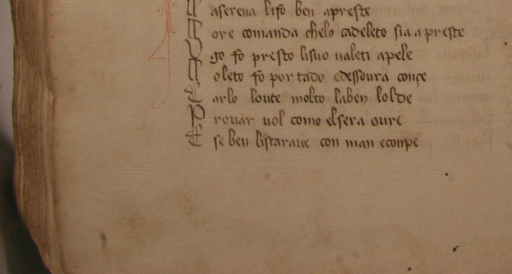 aserena liso ben apreste
ore comanda chelo cadeleto sia apreste
V go fo presto lisuo valeti apele
oleto fo portado edessoura conçe
C arlo loute molto laben lolde
P rouar uol como elsera oure
E se ben listaraue con man econpe